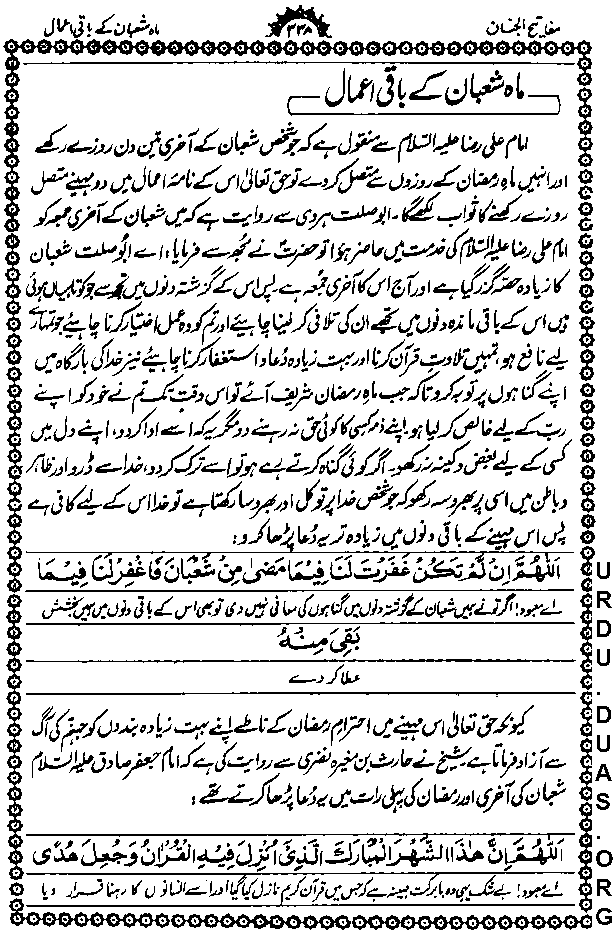 مفاتیح الجنان
۳۳۸
ماہ شعبان کے باقی اعمال
ماہ شعبان کے باقی اعمال
امام علی رضا علیہ السلام سے منقول ہے کہ جو شخص شعبان کے آخری تین دن روزے رکھے
اور انہیں ماہ رمضان کے روزوں سے متصل کر دے تو حق تعالیٰ اس کے نامہ اعمال میں دو مہینے متصل
روزے رکھنے کا ثواب لکھے گا۔ ابو صلت ہروی سے روایت ہے کہ میں شعبان کے آخری جمعہ کو
امام علی رضا علیہ السلام کی خدمت میں حاضر ہوا تو حضرت نے مجھ سے فرمایا: اے ابو صلت شعبان
کا زیادہ حصہ گزر گیا ہے اور آج اس کا آخری جمعہ ہے پس اس کے گزشتہ دنوں میں تجھ سے جو کوتاہیاں ہوئی
ہیں اس کے باقی ماندہ دنوں میں تجھے ان کی تلافی کر لینا چاہیئے اور تم کو وہ عمل اختیار کرنا چاہیئے جو تمہارے
لیے نافع ہو، تمہیں تلاوتِ قرآن کرنا اور بہت زیادہ دُعا و استغفار کرنا چاہیئے نیز خدا کی بارگاہ میں
اپنے گناہوں پر توبہ کرو تاکہ جب ماہِ رمضان شریف آئے تو اس وقت تک تم نے خود کو اپنے
ربّ کے لیے خالص کر لیا ہو۔ اپنے ذمہ کسی کا کوئی حق نہ رہنے دو مگر یہ کہ اسے ادا کر دو، اپنے دل میں
کسی کے لیے بغض و کینہ نہ رکھو۔ اگر کوئی گناہ کرتے رہے ہو تو اسے ترک کر دو، خدا سے ڈرو اور ظاہر
و باطن میں اسی پر بھروسہ رکھو کہ جو شخص خدا پر توکل اور بھروسا رکھتا ہے تو خدا اس کے لیے کافی ہے
پس اس مہینے کے باقی دنوں میں زیادہ تر یہ دُعا پڑھا کرو:
اَللّٰهُمَّ اِنْ لَمْ تَكُنْ غَفَرْتَ لَنَا فِيمَا مَضٰى مِنْ شَعْبَانَ فَاغْفِرْ لَنَا فِيمَا
اے معبود! اگر تو نے ہمیں شعبان کے گزشتہ دنوں میں گناہوں کی معافی نہیں دی تو بھی اس کے باقی دنوں میں ہمیں بخشش
بَقِيَ مِنْهُ
عطا کر دے
کیونکہ حق تعالیٰ اس مہینے میں احترامِ رمضان کے ناطے اپنے بہت زیادہ بندوں کو جہنم کی آگ
سے آزاد فرماتا ہے شیخ نے حارث بن مغیرہ نضری سے روایت کی ہے کہ امام جعفر صادق علیہ السلام
شعبان کی آخری اور رمضان کی پہلی رات میں یہ دُعا پڑھا کرتے تھے:
اَللّٰهُمَّ اِنَّ هٰذَا الشَّهْرَ الْمُبَارَكَ الَّذِیْ اُنْزِلَ فِيْهِ الْقُرْاٰنُ وَجُعِلَ هُدًى
اے معبود! بے شک یہی وہ بابرکت مہینہ ہے کہ جس میں قرآن کریم نازل کیا گیا اور اسے انسانوں کا رہنما قرار دیا
URDU.DUAS.ORG